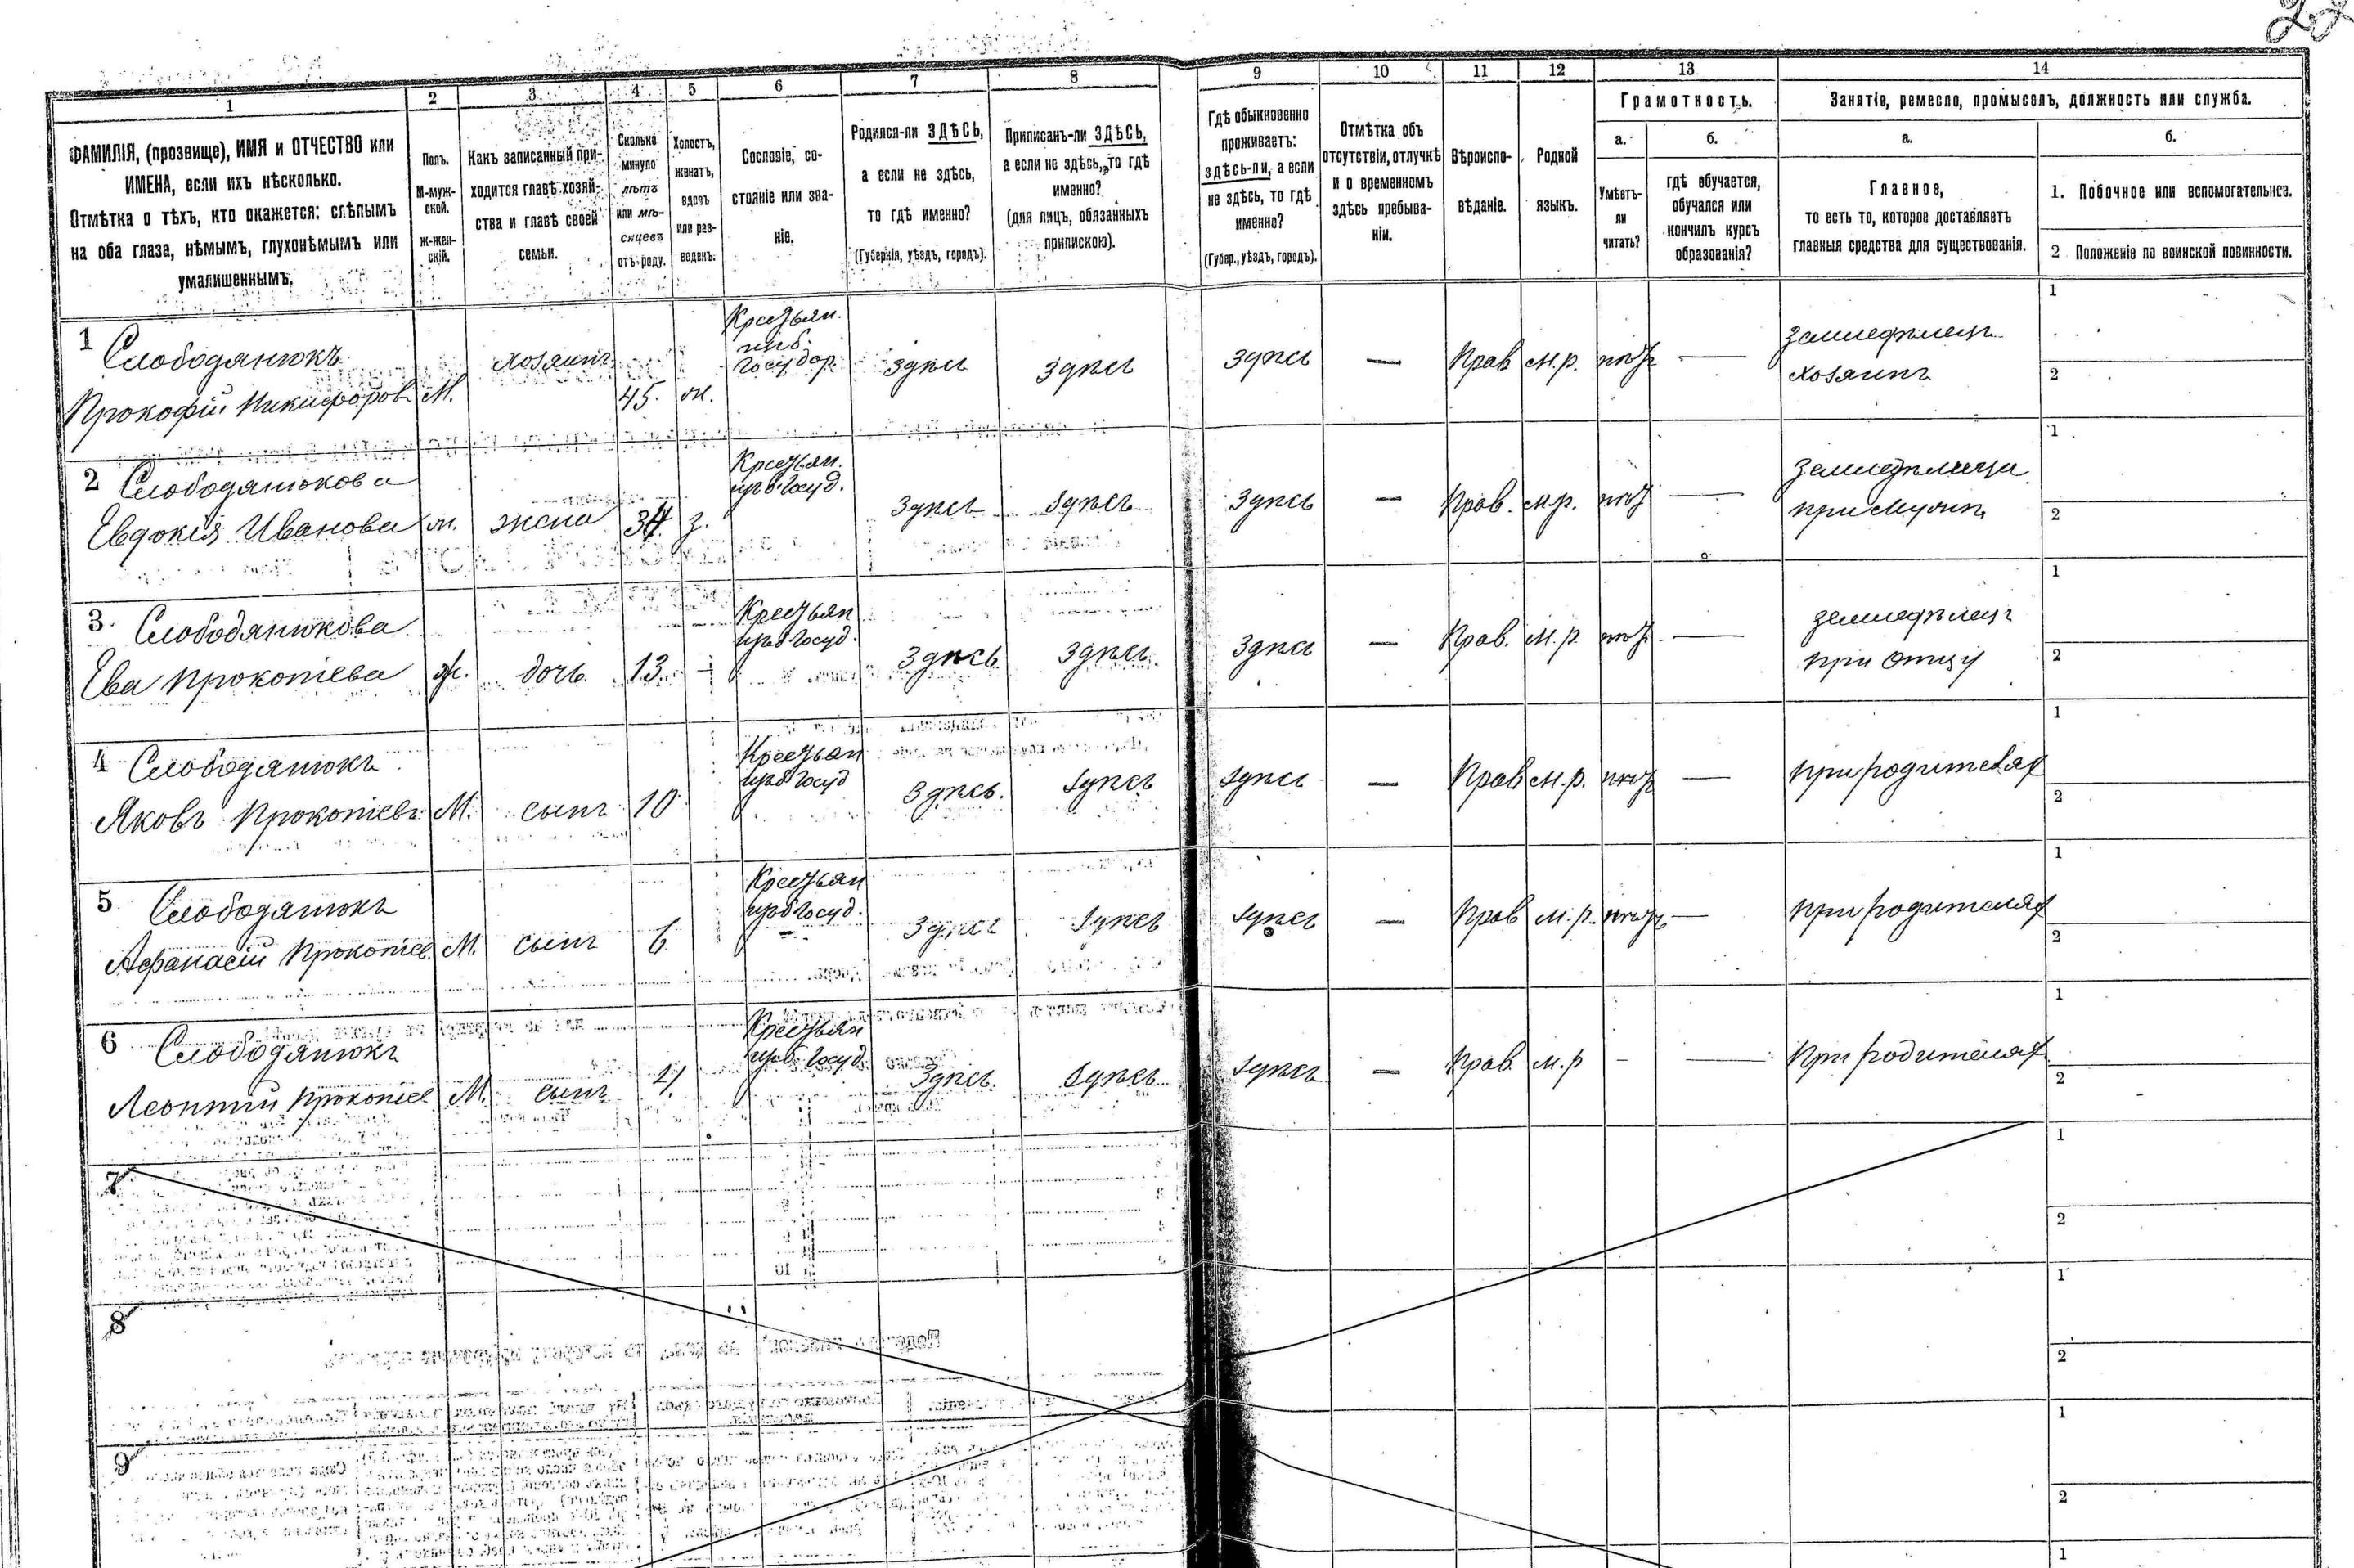 27
1
2
3
4
5
6
7
8
9
10
11
12
13
14
ФАМИЛІЯ, (прозвище), ИМЯ и ОТЧЕСТВО или
ИМЕНА, если ихъ нѣсколько.
Отмѣтка о тѣхъ, кто окажется: слѣпымъ
на оба глаза, нѣмымъ, глухонѣмымъ или
умалишеннымъ.
Полъ.
М-муж-
ской.
ж-жен-
скій.
Какъ записанный при-
ходится главѣ хозяй-
ства и главѣ своей
семьи.
Сколько
минуло
лѣтъ
или мѣ-
сяцевъ
отъ роду.
Холостъ,
женатъ,
вдовъ
или раз-
веденъ.
Сословіе, со-
стояніе или зва-
ніе.
Родился-ли ЗДѢСЬ,
а если не здѣсь,
то гдѣ именно?
(Губернія, уѣздъ, городъ).
Приписанъ-ли ЗДѢСЬ,
а если не здѣсь, то гдѣ
именно?
(для лицъ, обязанныхъ
припискою).
Гдѣ обыкновенно
проживаетъ:
здѣсь-ли, а если
не здѣсь, то гдѣ
именно?
(Губер., уѣздъ, городъ).
Отмѣтка объ
отсутствіи, отлучкѣ
и о временномъ
здѣсь пребыва-
ніи.
Вѣроиспо-
вѣданіе.
Родной
языкъ.
Грамотность.
а.
Умѣетъ-
ли
читать?
б.
гдѣ обучается,
обучался или
кончилъ курсъ
образованія?
Занятіе, ремесло, промыселъ, должность или служба.
а.
Главное,
то есть то, которое доставляетъ
главныя средства для существованія.
б.
1. Побочное или вспомогательное.
2 Положеніе по воинской повинности.
1 Слободянюкъ
Прокофій Никифоров М. хозяинъ 45. ж.
Крестьян.
Государ.
здѣсь здѣсь здѣсь — Прав м.р. нѣтъ —
земледѣлецъ
хозяинъ
1
2
2 Слободянюкова
Евдокія Иванова ж. жена 34. з.
Крестьян.
изъ Госуд.
здѣсь здѣсь здѣсь — Прав. м.р. нѣтъ —
земледѣлица
при мужѣ
1
2
3. Слободянюкова
Ева Прокопіева ж. дочь 13. —
Крестьян
изъ Госуд.
здѣсь здѣсь здѣсь — Прав. м.р. нѣтъ —
земледѣлецъ
при отцу
1
2
4 Слободянюкъ
Яковъ Прокопіевъ М. сынъ 10
Крестьян
изъ Госуд
здѣсь. здѣсь здѣсь — Прав м.р. нѣтъ — при родителях
1
2
5 Слободянюкъ
Афанасій Прокопіев. М. сынъ 6
Крестьян
изъ Госуд.
здѣсь здѣсь здѣсь — Прав м.р. нѣтъ — при родителях
1
2
6 Слободянюкъ
Леонтий Прокопіев М. сынъ 4
Крестьян
изъ Госуд.
здѣсь здѣсь здѣсь — Прав. м.р – — При родителях
1
2
7
1
2
8
1
2
9
1
2
1